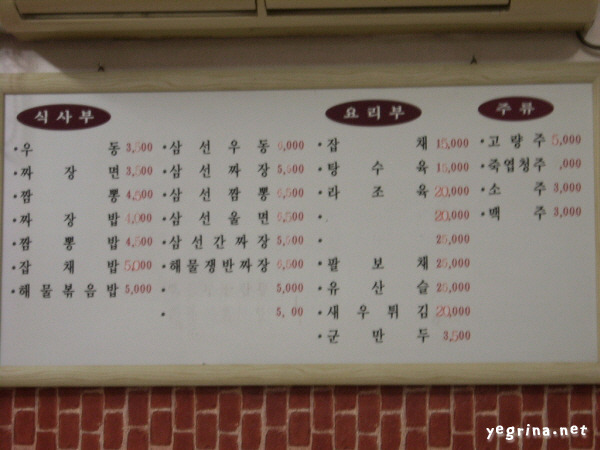 식사부
·우동 3,500
·짜장면 3,500
·짬뽕 4,500
·짜장밥 4,000
·짬뽕밥 4,500
·잡채밥 5,000
·해물볶음밥 5,000
·삼선우동 6,000
·삼선짜장 5,500
·삼선짬뽕 6,500
·삼선울면 6,500
·삼선간짜장 5,500
·해물쟁반짜장 6,500
· 5,000
· 5, 00
요리부
·잡채 15,000
·탕수육 15,000
·라조육 20,000
· 20,000
· 25,000
·팔보채 25,000
·유산슬 25,000
·새우튀김 20,000
·군만두 3,500
주류
·고량주 5,000
·죽엽청주 ,000
·소주 3,000
·백주 3,000
yegrina.net